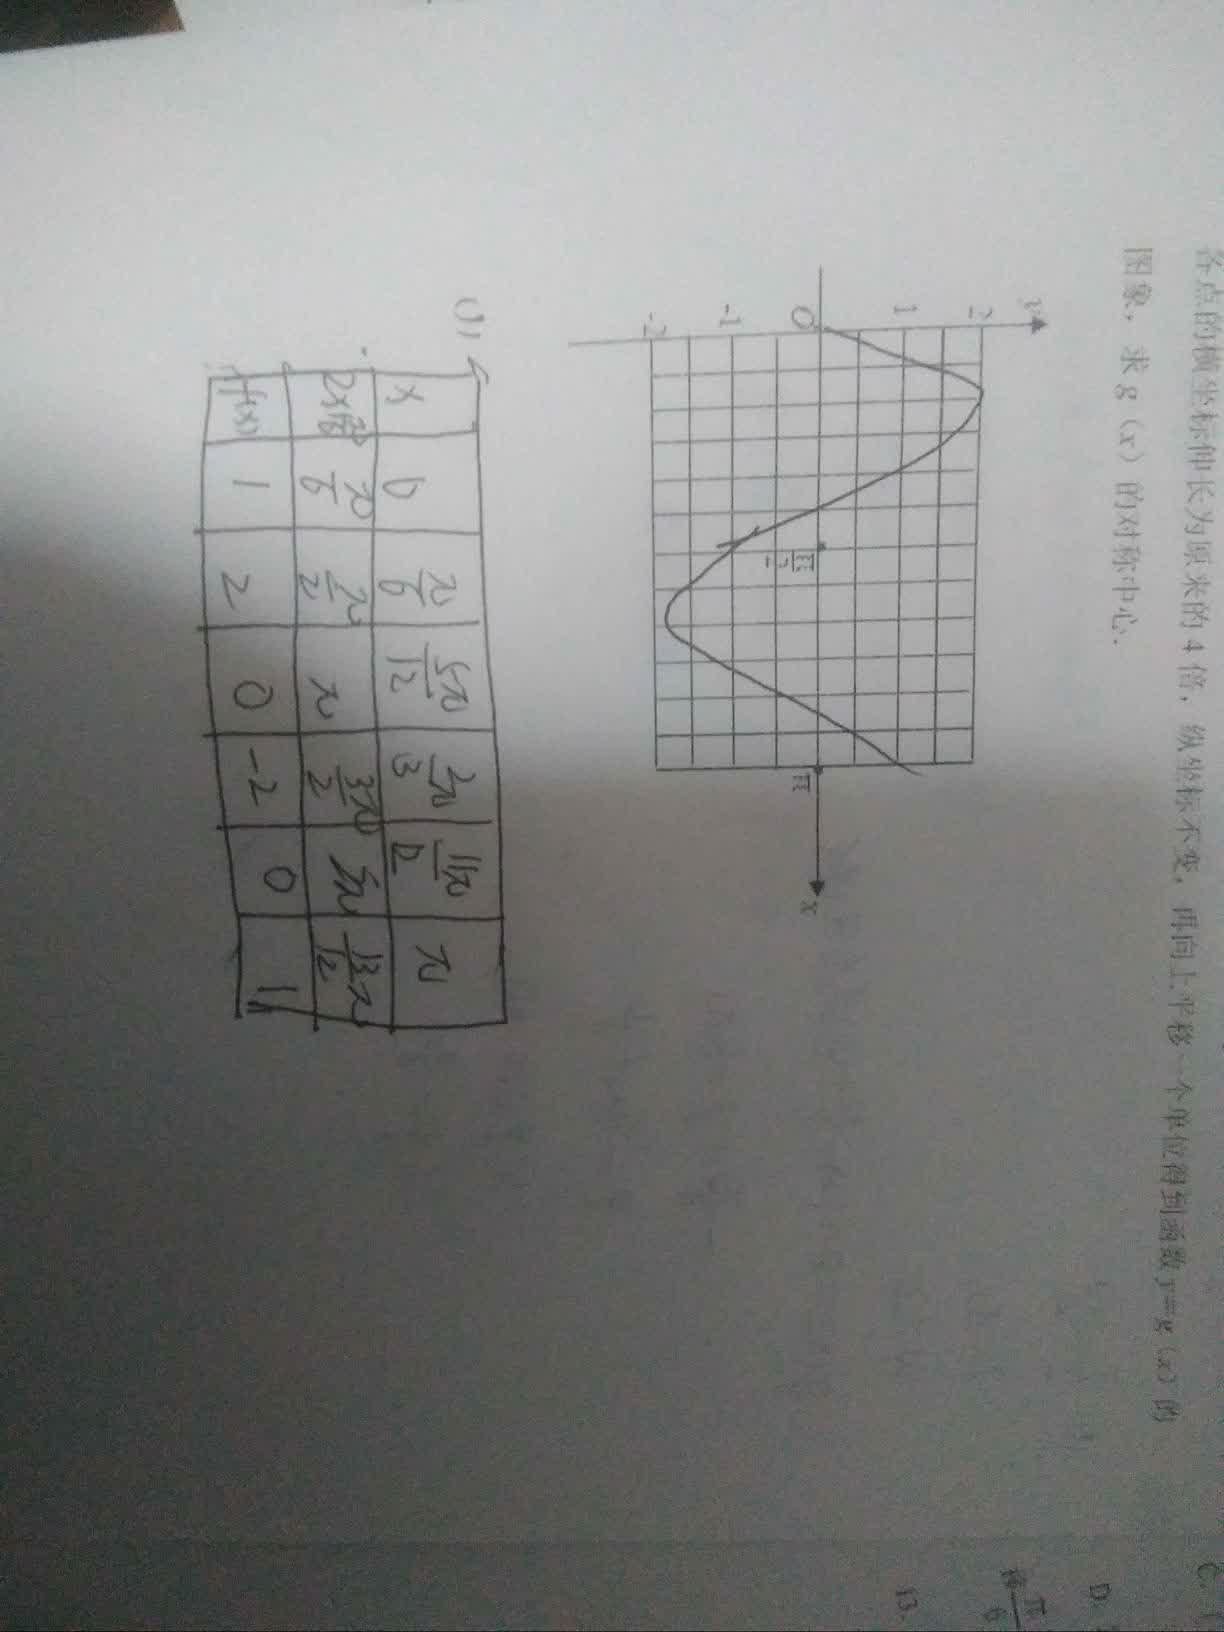 各点的横坐标伸长为原来的4倍，纵坐标不变，再向上平移一个单位得到函数y=g（x）的
图象，求g（x）的对称中心.
y
2
1
O
-1
-2
π/2
π
x
(1)
x 0 π/6 5π/12 2π/3 11π/12 π
π/6 π/2 π 3π/2 2π 13π/12
f(x) 1 2 0 -2 0 1
D.
π/6
13.